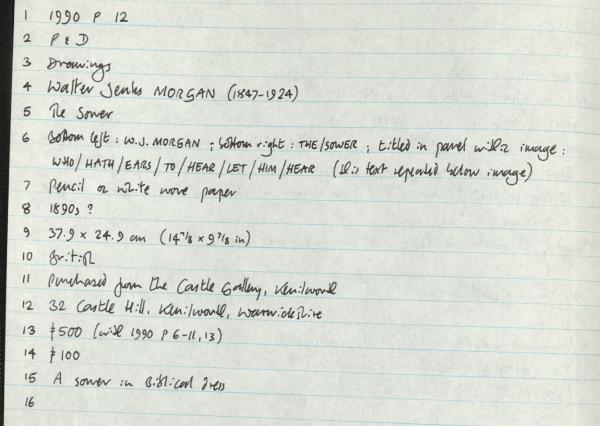 1 1990 P 12
2 P & D
3 Drawings
4 Walter Jenks MORGAN (1847-1924)
5 The Sower
6 Bottom left : W.J. MORGAN ; bottom right : THE/SOWER ; titled in panel within image :
WHO/HATH/EARS/TO/HEAR/LET/HIM/HEAR (this text repeated below image)
7 Pencil on white wove paper
8 1890s ?
9 37.9 x 24.9 cm (14 7/8 x 9 7/8 in)
10 British
11 Purchased from the Castle Gallery, Kenilworth
12 32 Castle Hill, Kenilworth, Warwickshire
13 £500 (with 1990 P 6-11, 13)
14 £100
15 A sower in Biblical dress
16